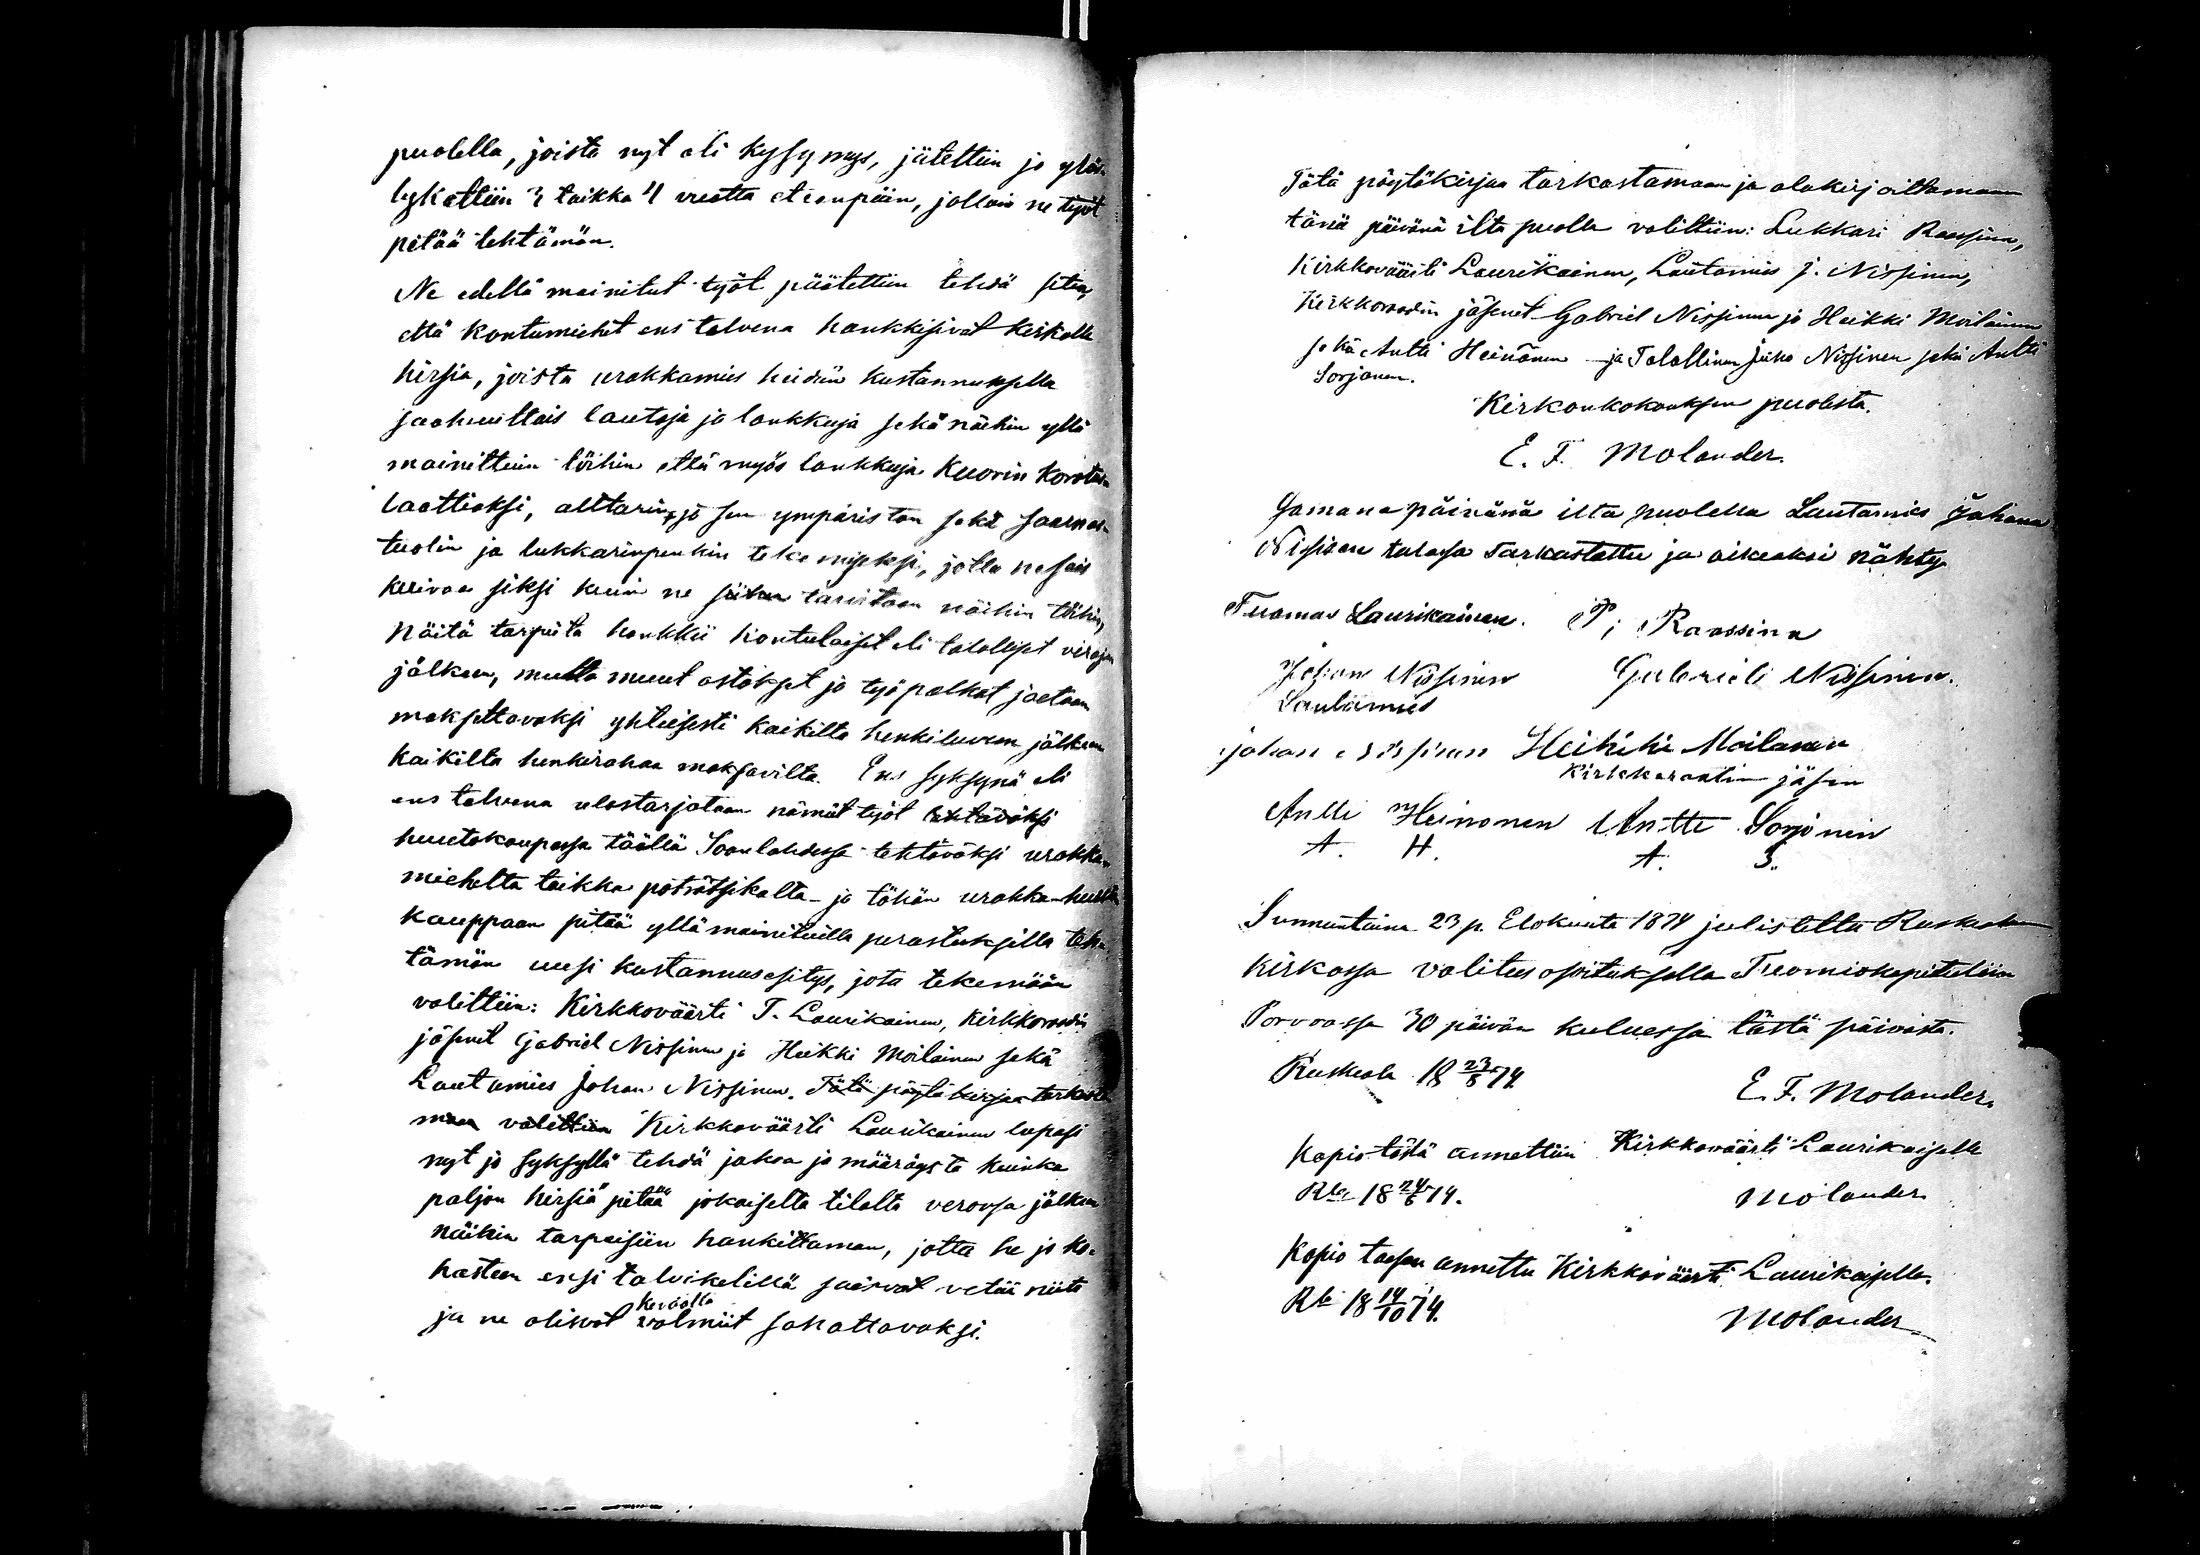 puolella, joista nyt oli kysymys, jätettiin ja ylös-
lykättiin 3 taikka 4 vuotta eteenpäin, jolloin ne työt
pitää tehtämän.
Ne edellä mainitut työt päätettiin tehdä siten,
että kontumiehet ens talvena hankkisivat kirkolle
hirsiä, joista urakkamies heidän kustannuksella
saahuittais lautoja ja lankkuja sekä näihin yllä
mainittuin töihin että myös lankkuja Kuorin korotus-
laattiaksi, alttarin ja sen ympäristön sekä saarnas-
tuolin ja lukkarinpenkin tekemiseksi, jotta ne sais
kuivaa siksi kuin ne siihen tarvitaan näihin töihin,
Näitä tarpeita hankkii kontulaiset eli talolliset verojen
jälkeen, mutta muut ostokset ja työpalkat jaetaan
maksettavaksi yhteisesti kaikilta henkiluvun jälkeen
kaikilta henkirahaa maksavilta. Ens syksynä eli
ens talvena ulostarjotaan nämät työt tehtäväksi
huutokaupassa täällä Soanlahdessa tehtäväksi urakka-
miehelta taikka poträtsikalta ja tähän urakka-huuto-
kauppaan pitää yllämainituilla perustuksilla teh-
tämän uusi kustannusesitys, jota tekemään
valittiin: Kirkkoväärti T. Laurikainen, Kirkkoraadin
jäsenet Gabriel Nissinen ja Heikki Moilainen sekä
Lautamies Johan Nissinen. Tätä pöytäkirjaa tarkasta-
maan valittiin Kirkkoväärti Laurikainen lupasi
nyt jo syksyllä tehdä jakoa ja määräystä kuinka
paljon hirsiä pitää jokaiselta tilalta veronsa jälkeen
näihin tarpeisiin hankittaman, jotta he jo ko-
hasteen ensi talvikelillä saisivat vetää niitä
keväällä
ja ne olisivat valmiit sahattavaksi.
Tätä pöytäkirjaa tarkastamaan ja alakirjoittamaan
tänä päivänä ilta puolla valittiin: Lukkari Raasina,
Kirkkoväärti Laurikainen, Lautamies J. Nissinen,
Kirkkoraadin jäsenet Gabriel Nissinen ja Heikki Moilainen
sekä Antti Heinänen ja Talollinen Juho Nissinen sekä Antti
Sorjonen.
Kirkonkokouksen puolesta.
E. F. Molander.
Samana päivänä ilta puolella Lautamies Johana
Nissisen talossa tarkastettu ja oikeaksi nähty
Tuomas Laurikainen. P; Raassina
Johan Nissinen Gabrieli Nissinen.
Lautamies
Johan Nissinen Heikiki Moilanen
Kirkkoraatin jäsen
Antti Heinonen Antti Sorjonen
A. H. A. S.
Sunnuntaina 23 p. Elokuuta 1874 julistettu Ruskealan
Kirkossa valitus osoituksella Tuomiokapituliin
Porvoossa 30 päivän kuluessa tästä päivästä.
Ruskeala 18 23/8 74.
E. F. Molander.
Kopio tästä annettiin Kirkkoväärti Laurikaiselle
Rla 18 24/8 74.
Molander
Kopio taasen annettu Kirkkoväärti Laurikaiselle.
Rla 18 14/10 74.
Molander